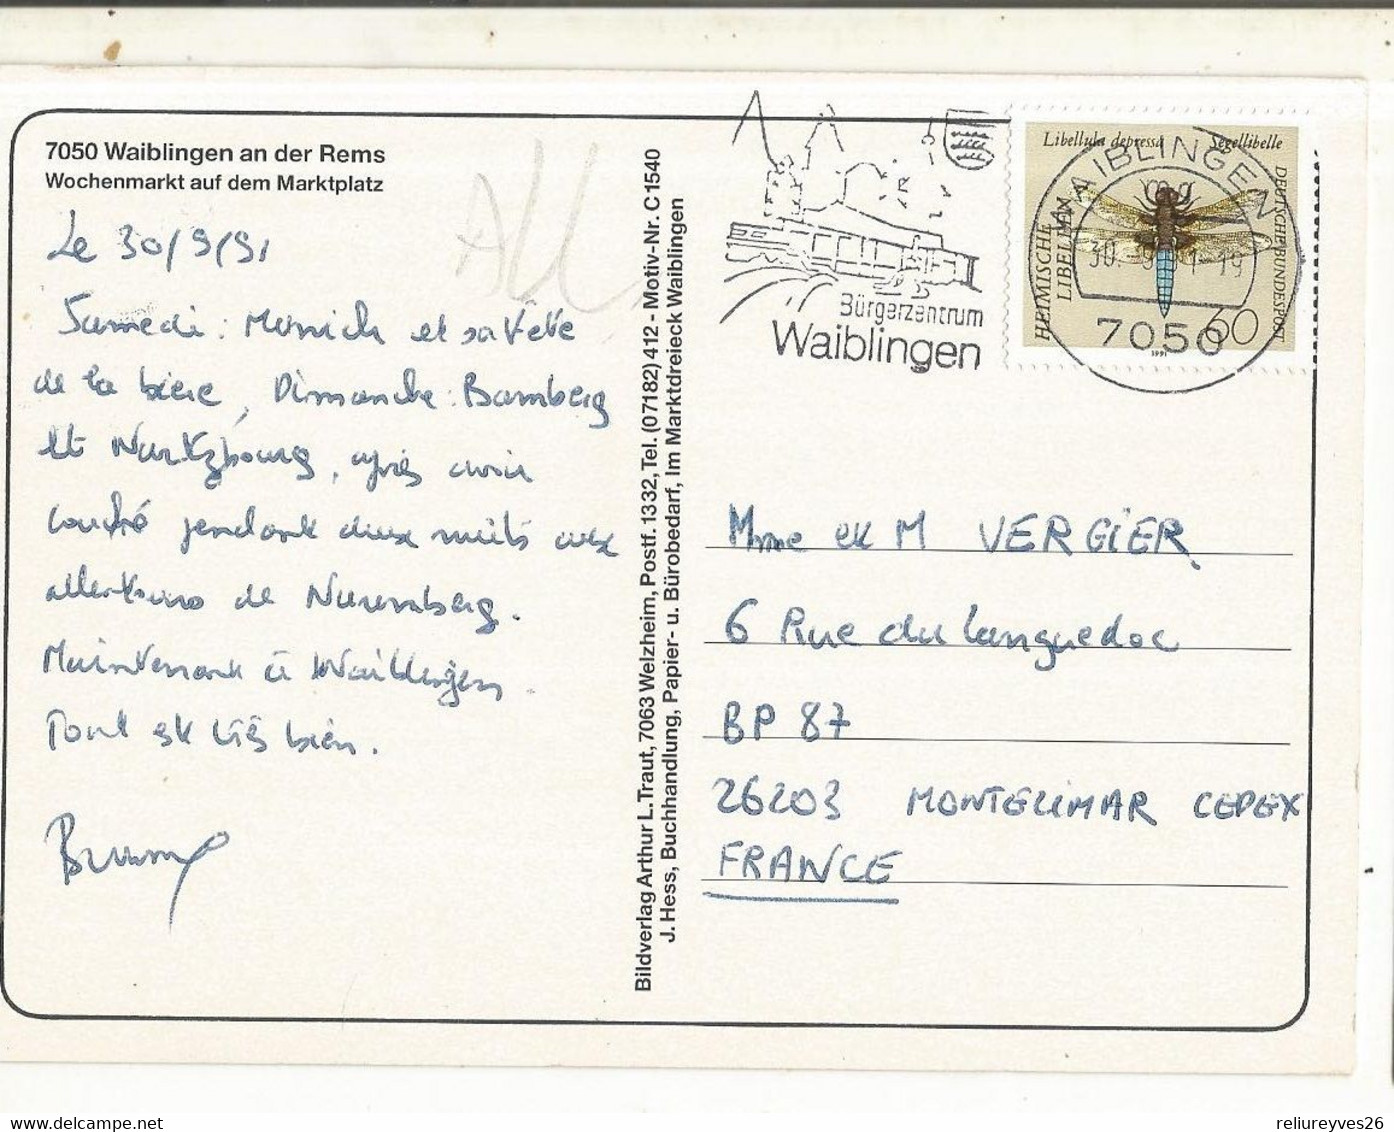 7050 Waiblingen an der Rems
Wochenmarkt auf dem Marktplatz
Le 30/9/91
Samedi : Munich et sa fête
de la bière, Dimanche : Bamberg
et Wurtzbourg, après avoir
couché pendant deux nuits aux
alentours de Nuremberg.
Maintenant à Waiblingen.
Tout est très bien.
Bruno
All
Bildverlag Arthur L. Traut, 7063 Welzheim, Postf. 1332, Tel. (07182) 412 - Motiv-Nr. C1540
J. Hess, Buchhandlung, Papier- u. Bürobedarf, Im Marktdreieck Waiblingen
Bürgerzentrum
Waiblingen
Libellula depressa Segellibelle
HEIMISCHE
LIBELLEN
DEUTSCHE BUNDESPOST
60
1991
WAIBLINGEN
mg
30.-9.91-19
7050
Mme et M VERGIER
6 Rue du Languedoc
BP 87
26203 MONTELIMAR CEDEX
FRANCE
reliureyves26